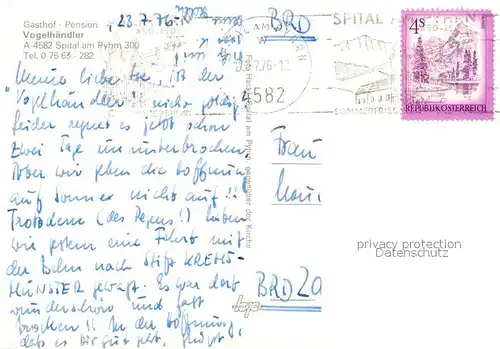 Gasthof - Pension
Vogelhändler
A-4582 Spital am Pyhrn 300
Tel. 0 75 63 - 282
23.7.76
Meine liebe, ist der
Vogelhändler nicht goldig,
leider regnet es jetzt schon
zwei Tage ununterbrochen
Aber wir geben die Hoffnung
auf Sonne nicht auf!!
Trotzdem (des Regens!) haben
wir gestern eine Fahrt mit
der Bahn nach Stift KREMS-
MÜNSTER gewagt. Es war dort
wunderschön und fast
trocken!! In der Hoffnung,
daß es Dir gut geht, grüßt
Spital am Pyhrn, gegenüber der Kirche
BRD
SPITAL AM PYHRN
4582
SOMMERFRISCHE
4S
REPUBLIK ÖSTERREICH
Frau
BRD
privacy protection
Datenschutz